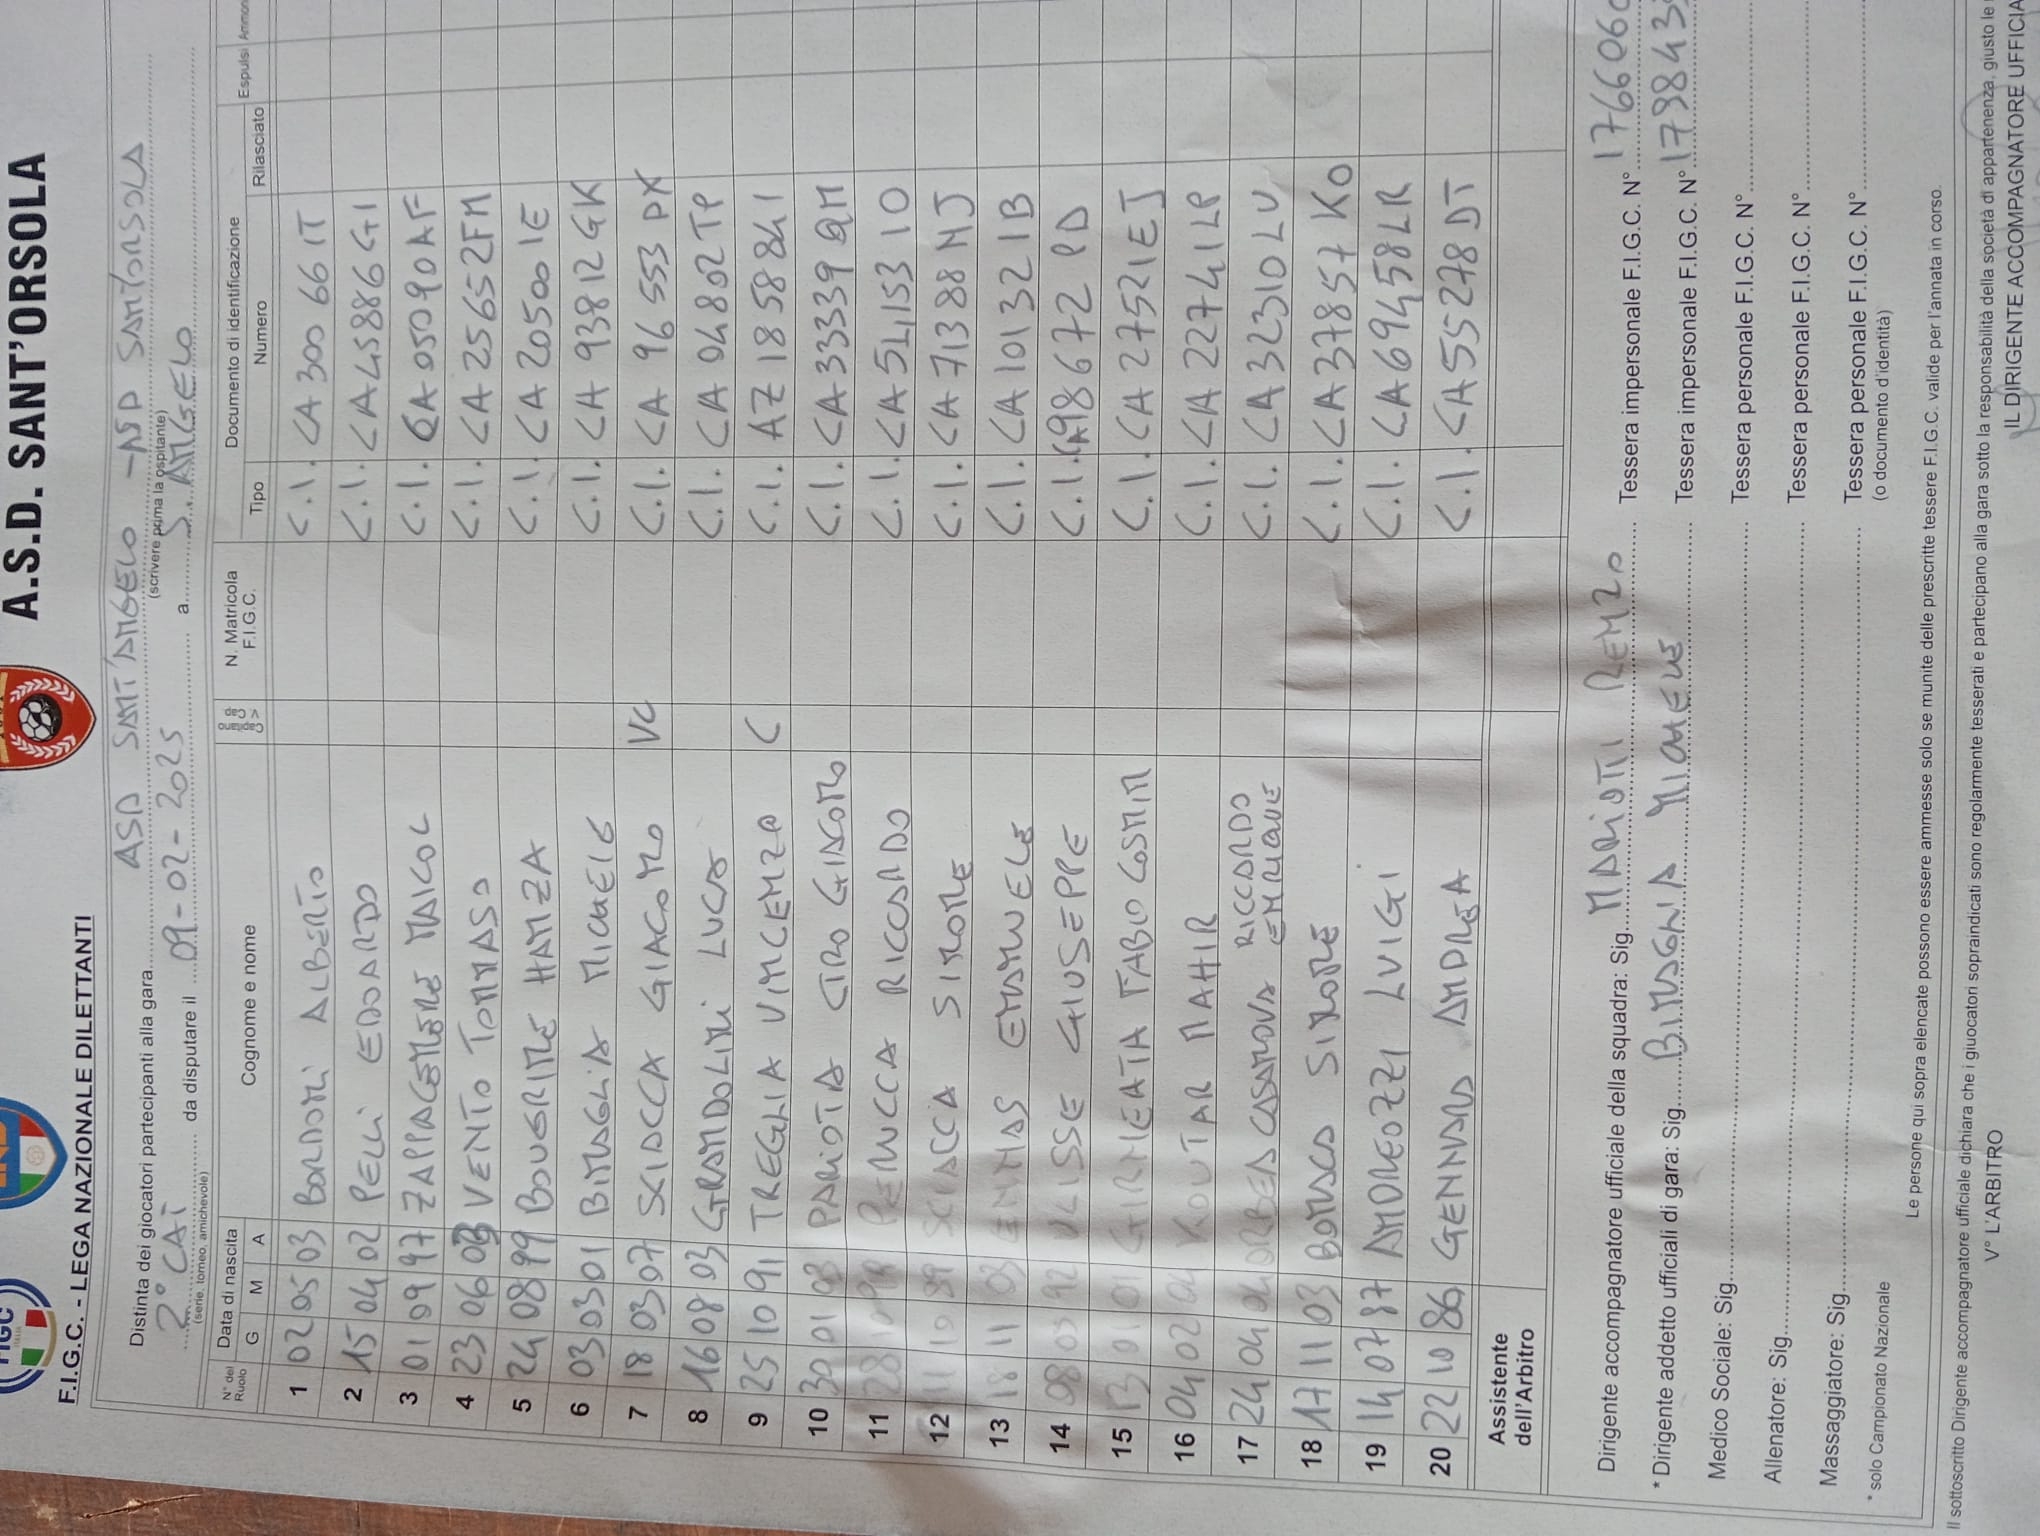 A.S.D. SANT'ORSOLA
F.I.G.C. - LEGA NAZIONALE DILETTANTI
Distinta dei giocatori partecipanti alla gara ASD SANT'ANGELO - ASD SANT'ORSOLA
(scrivere prima la ospitante)
2° CAT da disputare il 09-02-2025 a S. ANGELO
(serie, torneo, amichevole)
N° del Ruolo Data di nascita G M A Cognome e nome Capitano N. Matricola F.I.G.C. Documento di identificazione Tipo Numero Rilasciato Espulsi
1 02 05 03 BORDONI ALBERTO C.I. CA 300 66 IT
2 15 04 02 PELLI EDOARDO C.I. CA45886GI
3 01 09 97 ZAPPACENERE MAICOL C.I. CA05090AF
4 23 06 03 VENTO TOMMASO C.I. CA25652FM
5 24 08 99 BOUGRINE HAMZA C.I. CA20500IE
6 03 03 01 BINAGLIA MICHELE C.I. CA 93812GK
7 18 03 07 SCIACCA GIACOMO VC C.I. CA 96553PX
8 16 08 03 GRANDOLINI LUCA C.I. CA04802TP
9 25 10 91 TREGLIA VINCENZO C C.I. AZ1858841
10 30 01 03 PARIOTA CIRO GIACOMO C.I. CA33339QM
11 28 PERUCCA RICCARDO C.I. CA54153IO
12 10 89 SCIACCA SIMONE C.I. CA71388MJ
13 18 11 03 EMANUELE C.I. CA10132IB
14 08 03 92 ULISSE GIUSEPPE C.I. CA98672PD
15 13 01 01 GIRNEATA FABIO COSMIN C.I. CA27521EJ
16 04 02 04 KOUTAR MAHIR C.I. CA22741LP
17 24 04 04 ORBEA CASANOVA RICCARDO EMANUELE C.I. CA32310LU
18 17 11 03 BONSCA SIMONE C.I. CA37857KO
19 14 07 87 ANDREOZZI LUIGI C.I. CA69458LR
20 22 10 86 GENNARO ANDREA C.I. CA55278DT
Assistente dell'Arbitro
Dirigente accompagnatore ufficiale della squadra: Sig. MARIOTI RENZO Tessera impersonale F.I.G.C. N° 176606
* Dirigente addetto ufficiali di gara: Sig. BINAGLIA MICHELE Tessera impersonale F.I.G.C. N° 179843
Medico Sociale: Sig. Tessera personale F.I.G.C. N°
Allenatore: Sig. Tessera personale F.I.G.C. N°
Massaggiatore: Sig. Tessera personale F.I.G.C. N°
* solo Campionato Nazionale (o documento d'identità)
Le persone qui sopra elencate possono essere ammesse solo se munite delle prescritte tessere F.I.G.C. valide per l'annata in corso.
Il sottoscritto Dirigente accompagnatore ufficiale dichiara che i giuocatori sopraindicati sono regolarmente tesserati e partecipano alla gara sotto la responsabilità della società di appartenenza, giusto le
V° L'ARBITRO IL DIRIGENTE ACCOMPAGNATORE UFFICIA